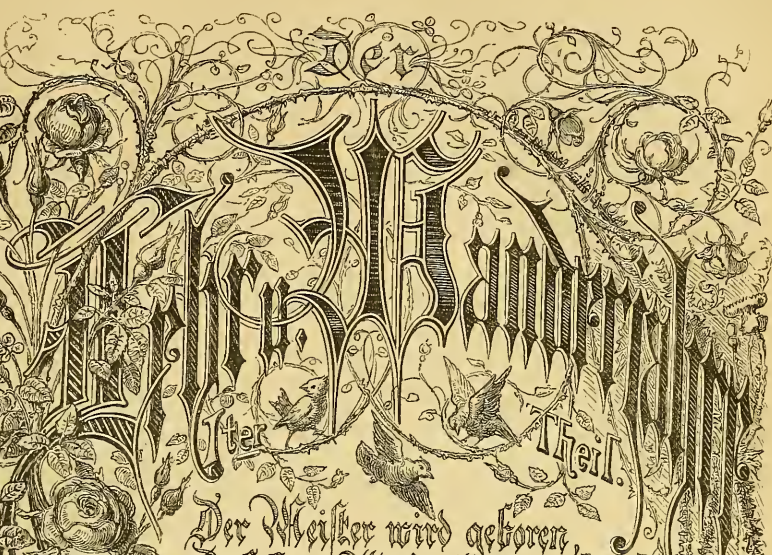 Der
Lehr u. Wanderjahre
1ter Theil.
Der Meister wird geboren,